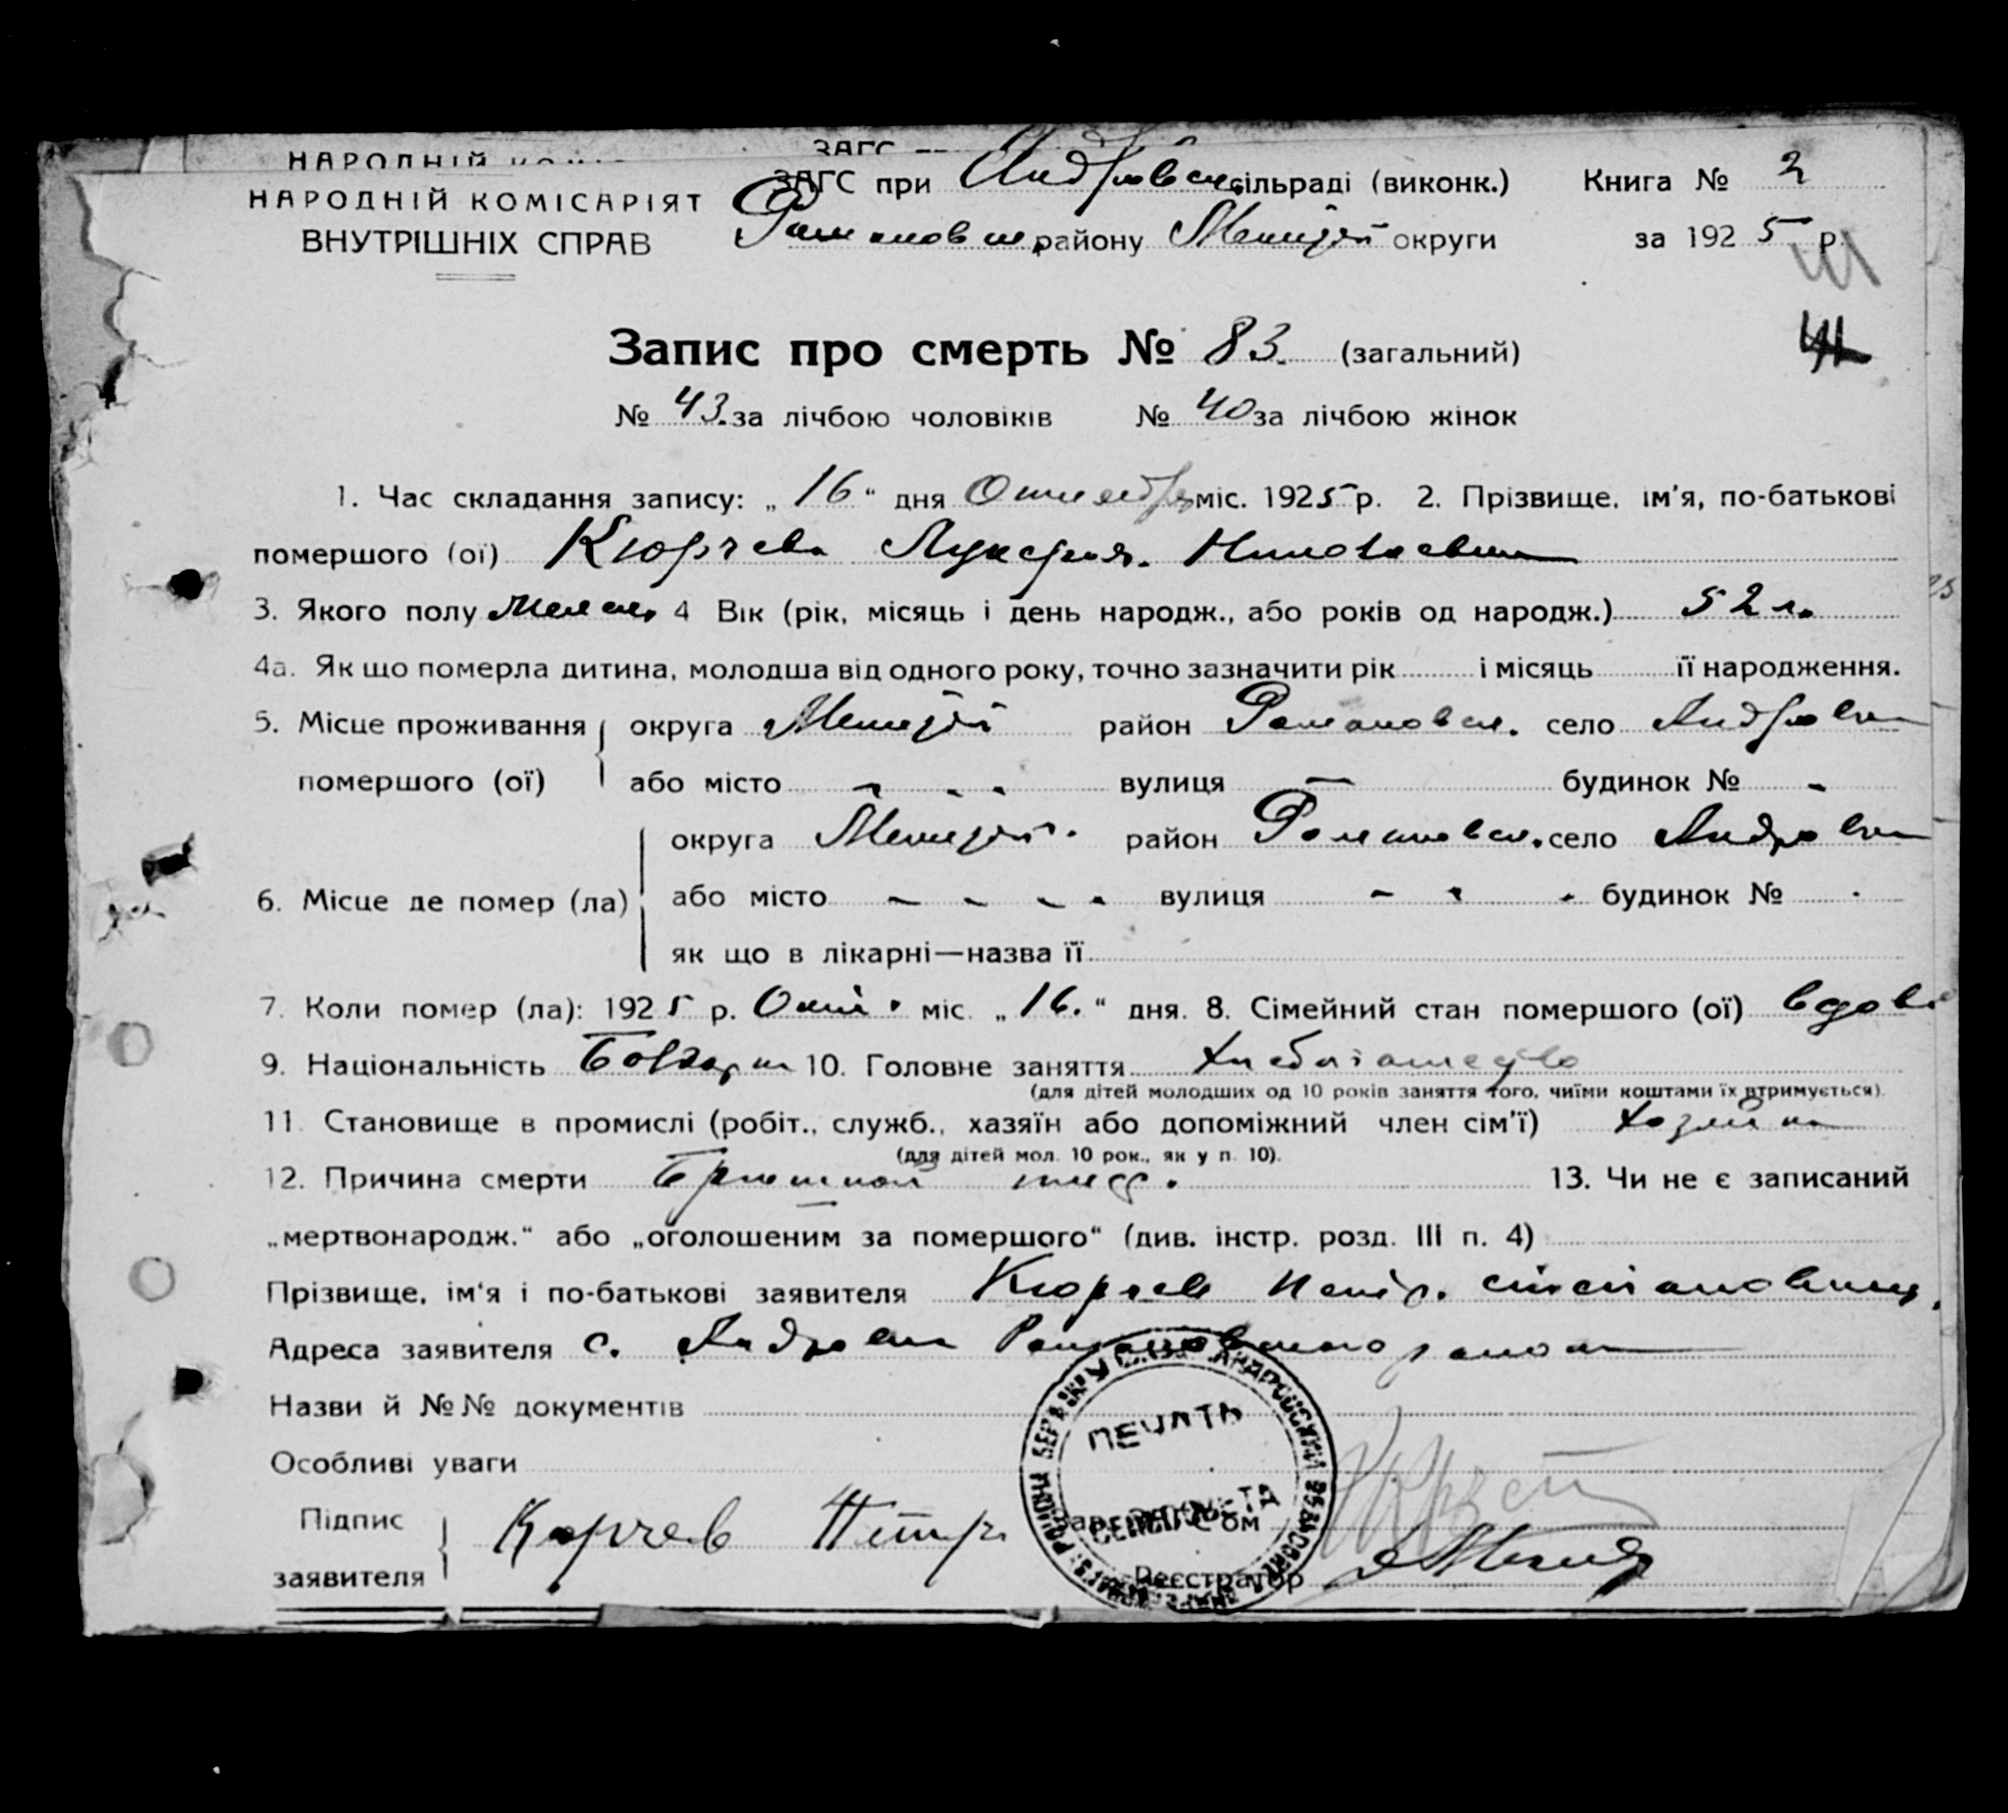 НАРОДНІЙ ЗАГС
ЗАГС при Андровск. сільраді (виконк.) Книга № 2
НАРОДНІЙ КОМІСАРІЯТ
ВНУТРІШНІХ СПРАВ
Романовск. району Мелитоп округи за 1925 р.
Запис про смерть № 83. (загальний)
№ 43. за лічбою чоловіків № 40 за лічбою жінок
1. Час складання запису: „16“ дня Октября міс. 1925 р. 2. Прізвище, ім'я, по-батькові
помершого (ої) Кюрчева Лукерия. Николаевна
3. Якого полу Женск. 4 Вік (рік, місяць і день народж., або років од народж.) 52 л.
4а. Як що померла дитина, молодша від одного року, точно зазначити рік і місяць її народження.
5. Місце проживання округа район Романовск. село Андровка
помершого (ої) або місто - - - вулиця - будинок № -
округа район Романовск. село Андровка
6. Місце де помер (ла) або місто - - - - вулиця - - - будинок № -
як що в лікарні—назва її
7. Коли помер (ла): 1925 р. Окт. міс. „16.“ дня. 8. Сімейний стан помершого (ої) вдова
9. Національність Болгарк 10. Головне заняття
(для дітей молодших од 10 років заняття того, чиїми коштами їх втримується).
11. Становище в промислі (робіт., служб., хазяїн або допоміжний член сім'ї) хозяйка
(для дітей мол. 10 рок., як у п. 10).
12. Причина смерти Брюшной тиф. 13. Чи не є записаний
„мертвонародж.“ або „оголошеним за помершого“ (див. інстр. розд. III п. 4)
Прізвище, ім'я і по-батькові заявителя Кюрчев Петр. Степанович,
Адреса заявителя с. Андровка Романовского района
Назви й №№ документів
Особливі уваги
ПЕЧАТА
Підпис Кюрчев Петр
заявителя Реєстратор